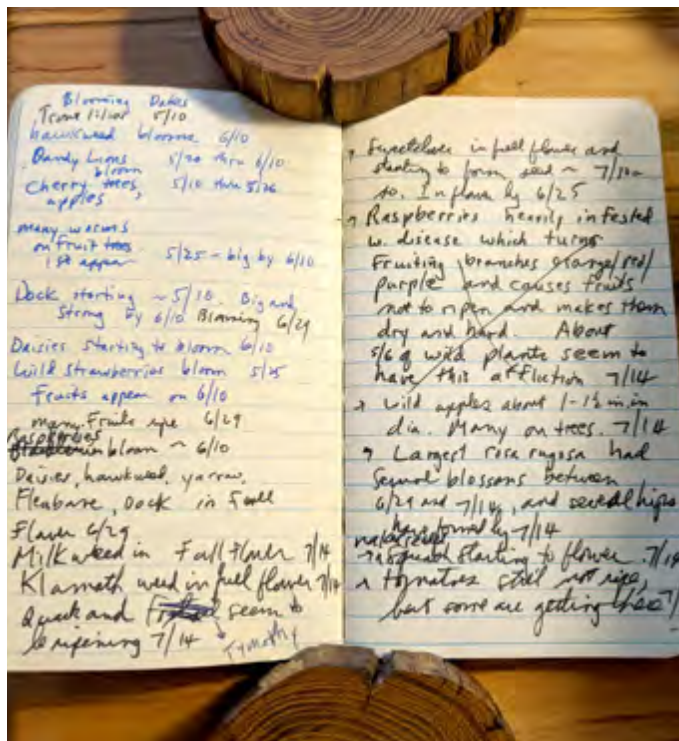 Blooming Dates
5/10
hawkweed blooms 6/10
Dandy Lions 5/20 thru 6/10
bloom
Cherry trees, 5/10 thru 5/26
apples
many worms
on Fruit trees
1st appear 5/25 - big by 6/10
Dock starting ~ 5/10. Big and
Strong by 6/10 Blooming 6/29
Daisies starting to bloom 6/10
Wild strawberries bloom 5/25
Fruits appear on 6/10
many Fruits ripe 6/29
Raspberries
bloom ~ 6/10
Daisies, hawkweed, yarrow,
Fleabane, Dock in Full
Flower 6/29
Milkweed in Full Flower 7/14
Klamath weed in full flower 7/14
Quack and seem to
be ripening 7/14 Tymothy
Sweetclover in full flower and
starting to form seed ~ 7/10 or
so. In flower by 6/25
Raspberries heavily infested
w. disease which turns
Fruiting branches orange/red/
purple and causes fruits
not to ripen and makes them
dry and hard. About
5/6 of wild plants seem to
have this affliction 7/14
Wild apples about 1-1½ in. in
dia. Many on trees. 7/14
Largest rosa rugosa had
Several blossoms between
6/29 and 7/14, and several hips
have formed by 7/14
squash starting to flower. 7/14
tomatoes still not ripe,
but some are getting